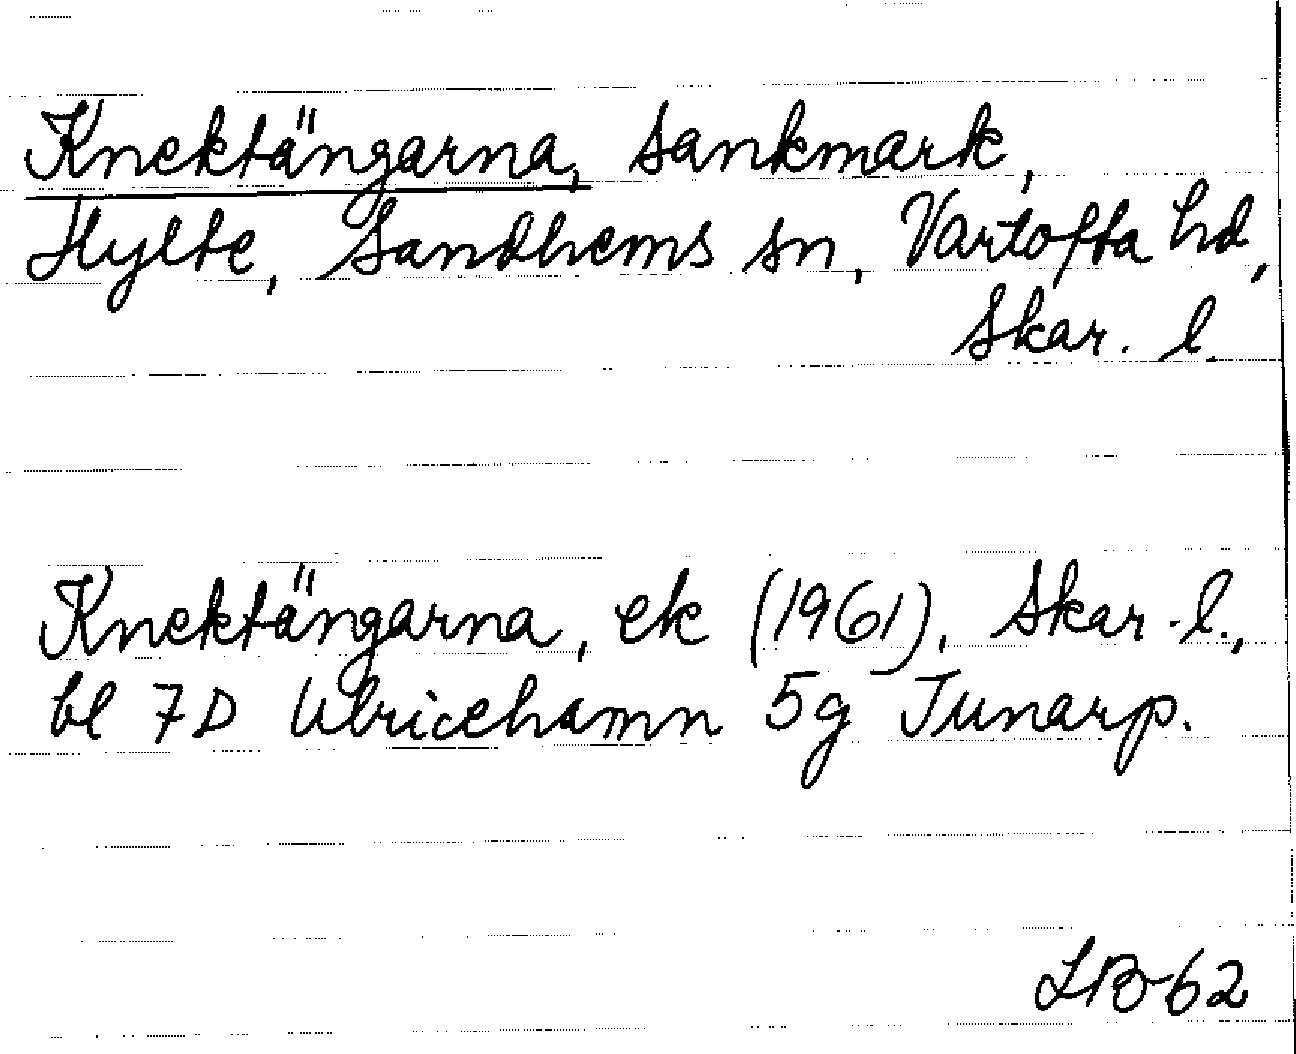 Knektängarna, sankmark,
Hylte, Sandhems sn, Vartofta hd,
Skar. l.
Knektängarna, ek (1961), Skar. l.,
bl 7D Ulricehamn 5g Junarp.
LB-62